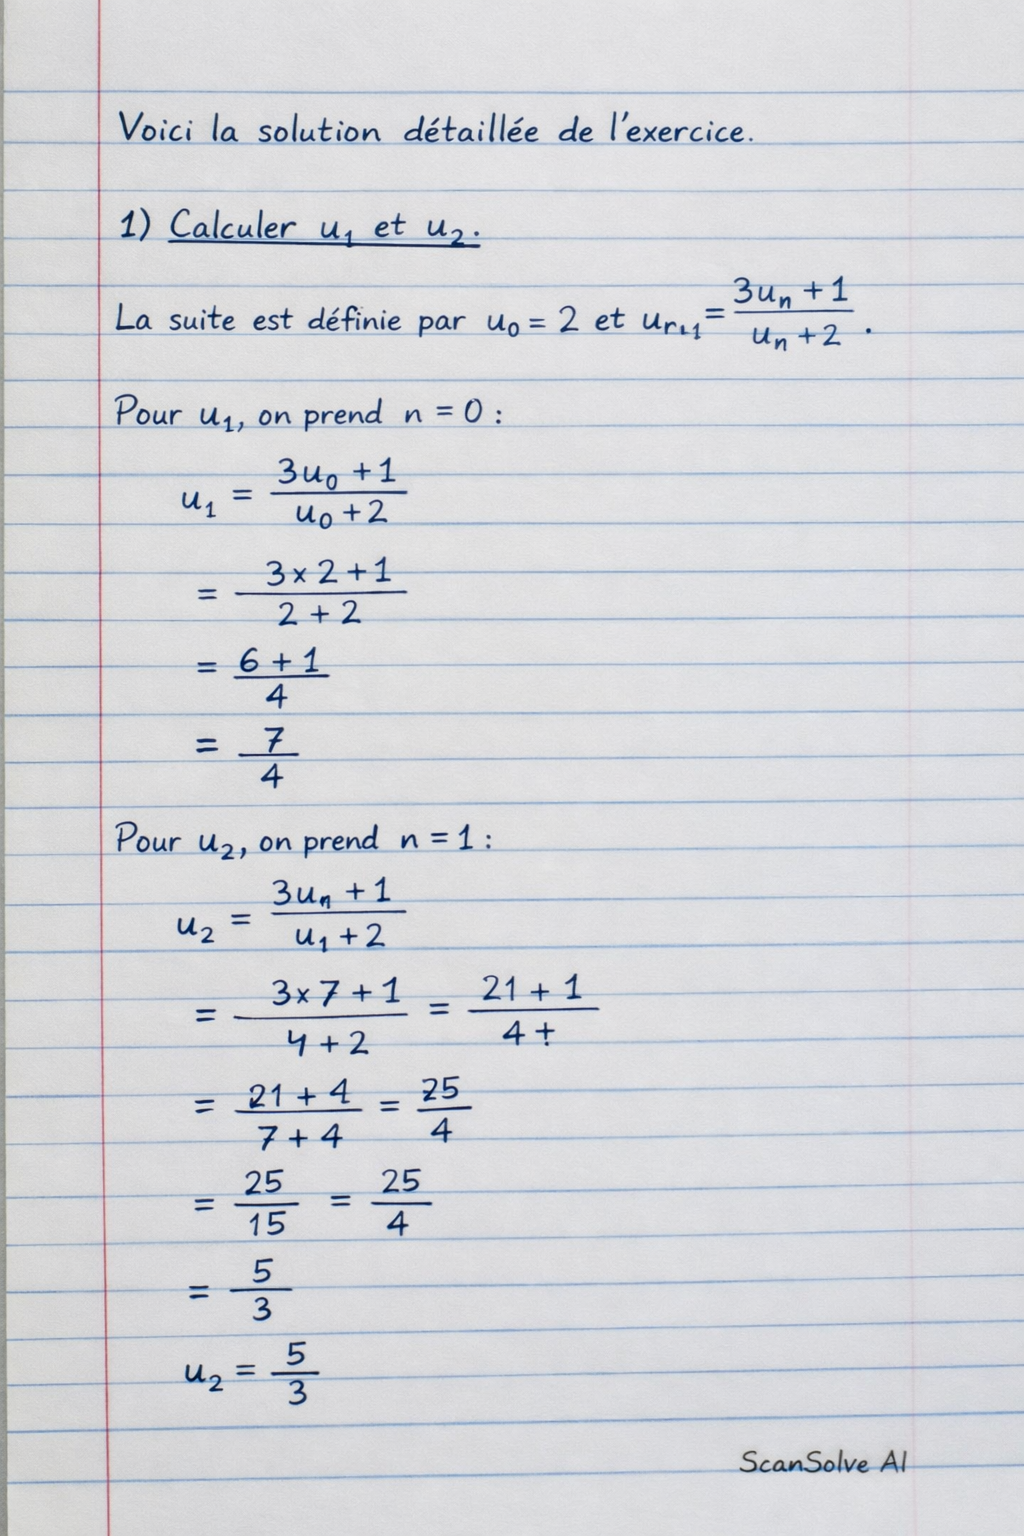 Voici la solution détaillée de l'exercice.
1) Calculer u₁ et u₂.
La suite est définie par u₀ = 2 et uᵣ₊₁ = (3uₙ + 1)/(uₙ + 2).
Pour u₁, on prend n = 0 :
u₁ = (3u₀ + 1)/(u₀ + 2)
= (3 × 2 + 1)/(2 + 2)
= (6 + 1)/4
= 7/4
Pour u₂, on prend n = 1 :
u₂ = (3uₙ + 1)/(u₁ + 2)
= (3 × 7 + 1)/(4 + 2) = (21 + 1)/(4 +)
= (21 + 4)/(7 + 4) = 25/4
= 25/15 = 25/4
= 5/3
u₂ = 5/3
ScanSolve AI